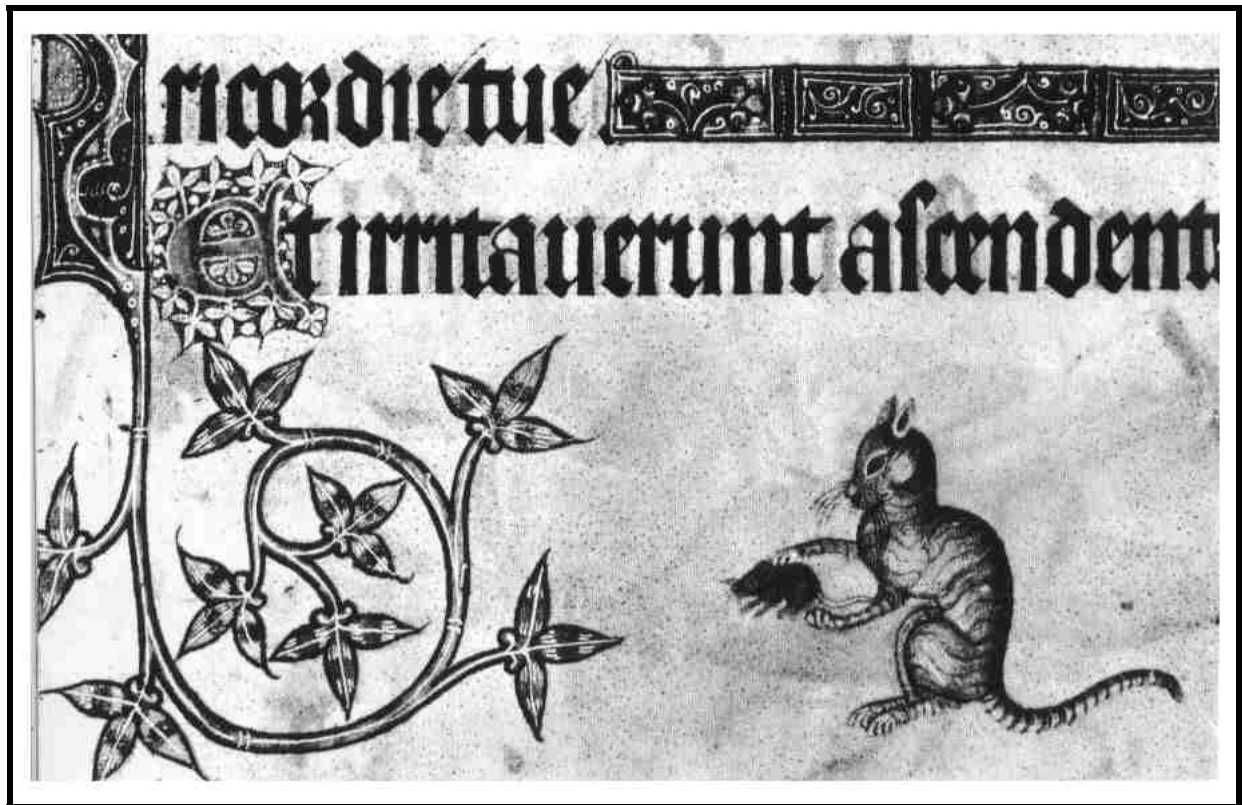 ricordie tue
Et irritauerunt aſcendent